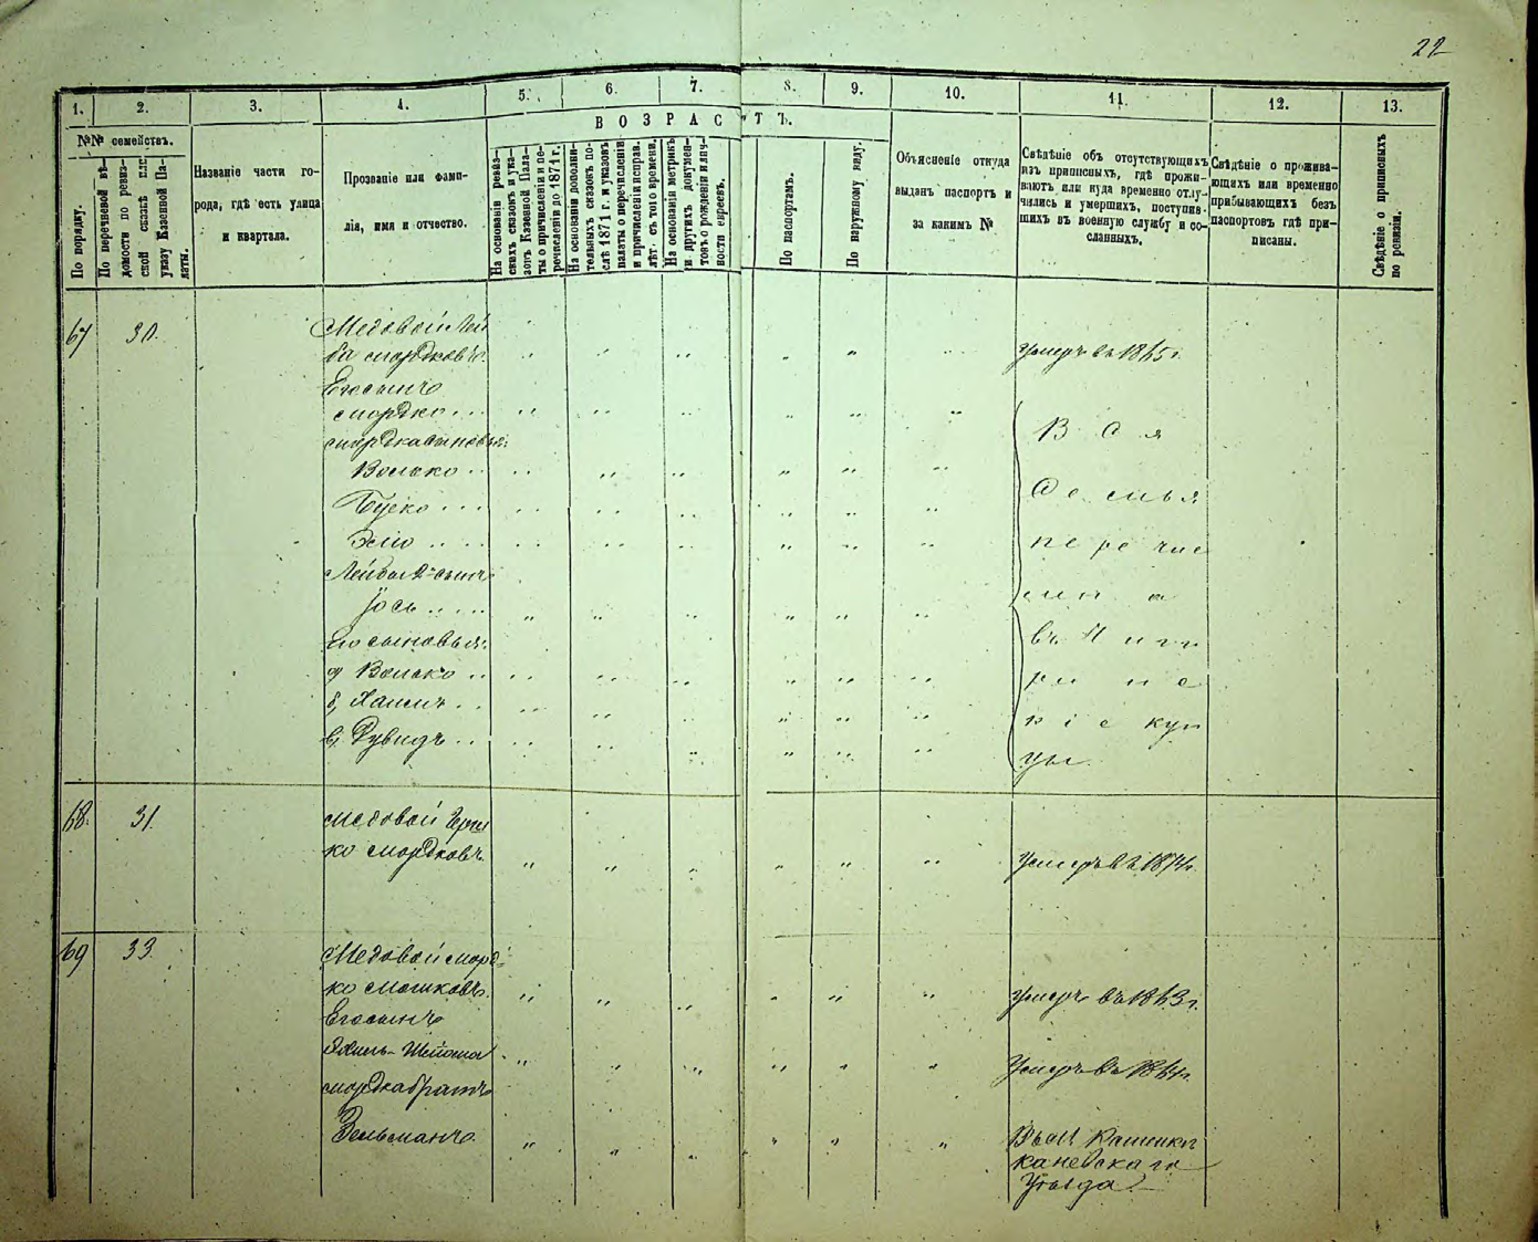 22
1. 2. 3. 4. 5. 6. 7. 8. 9. 10. 11. 12. 13.
№№ семействъ.
По порядку.
По перечневой вѣ-
домости по ревиз-
ской сказкѣ или
указу Казенной Па-
латы.
Названіе части го-
рода, гдѣ есть улица
и квартала.
Прозваніе или фами-
лія, имя и отчество.
ВОЗРАСТЪ.
На основаніи ревиз-
скихъ сказокъ и ука-
зовъ Казенной Пала-
ты о причисленіи и пе-
речисленіи до 1871 г.
На основаніи дополни-
тельныхъ сказокъ по-
слѣ 1871 г. и указовъ
палаты о перечисленіи
и причисленіи исправ.
лѣт. съ того времени.
На основаніи метрикъ
и другихъ докумен-
товъ о рожденіи и лич-
ности евреевъ.
По паспортамъ.
По наружному виду.
Объясненіе откуда
выданъ паспортъ и
за какимъ №
Свѣдѣніе объ отсутствующихъ
изъ приписныхъ, гдѣ прожи-
ваютъ или куда временно отлу-
чились и умершихъ, поступив-
шихъ въ военную службу и со-
сланныхъ.
Свѣдѣніе о прожива-
ющихъ или временно
прибывающихъ безъ
паспортовъ гдѣ при-
писаны.
Свѣдѣніе о приписныхъ
по ревизіи.
67 30. Медовой Лей
ба Мордковъ. Умеръ въ 1865 г.
Его сынъ
Мордко
Мордка сыновья:
Волько
Буско
Эліо
Лейбы 2й сынъ
Іось
Его сыновья:
а, Волько
б, Хаимъ
в, Дувидъ
Вся
Семья
перечис
лина
въ
купцы.
68. 31. Медовой Герш
ко Мордковъ. Умеръ въ 1874 г.
69 33. Медовой Морд
ко Мошковъ. Умеръ въ 1863 г.
Его сынъ
Хиль-Шлиома Умеръ въ
Мордка братъ
Зельманъ
Каневскаго
Уѣзда